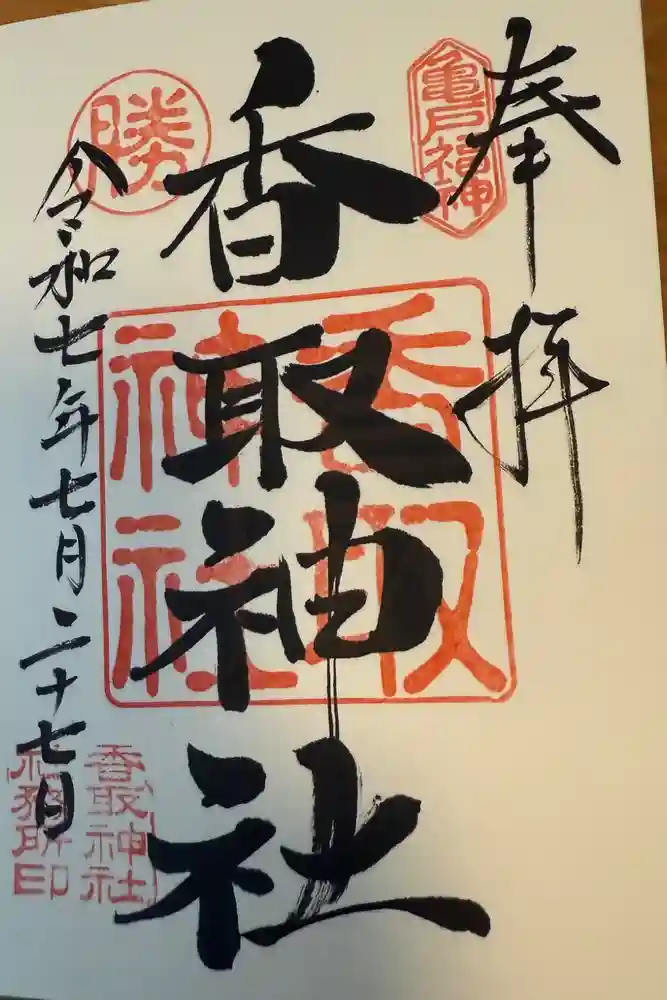 奉拝
亀戸福神
香取神社
香取
神社
勝
令和七年七月二十七日
香取神社
社務所印